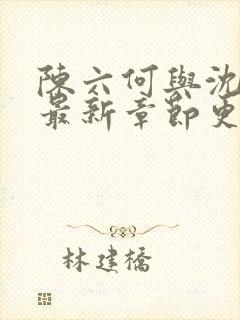 陳六何與沈
最新章節更
林建橋